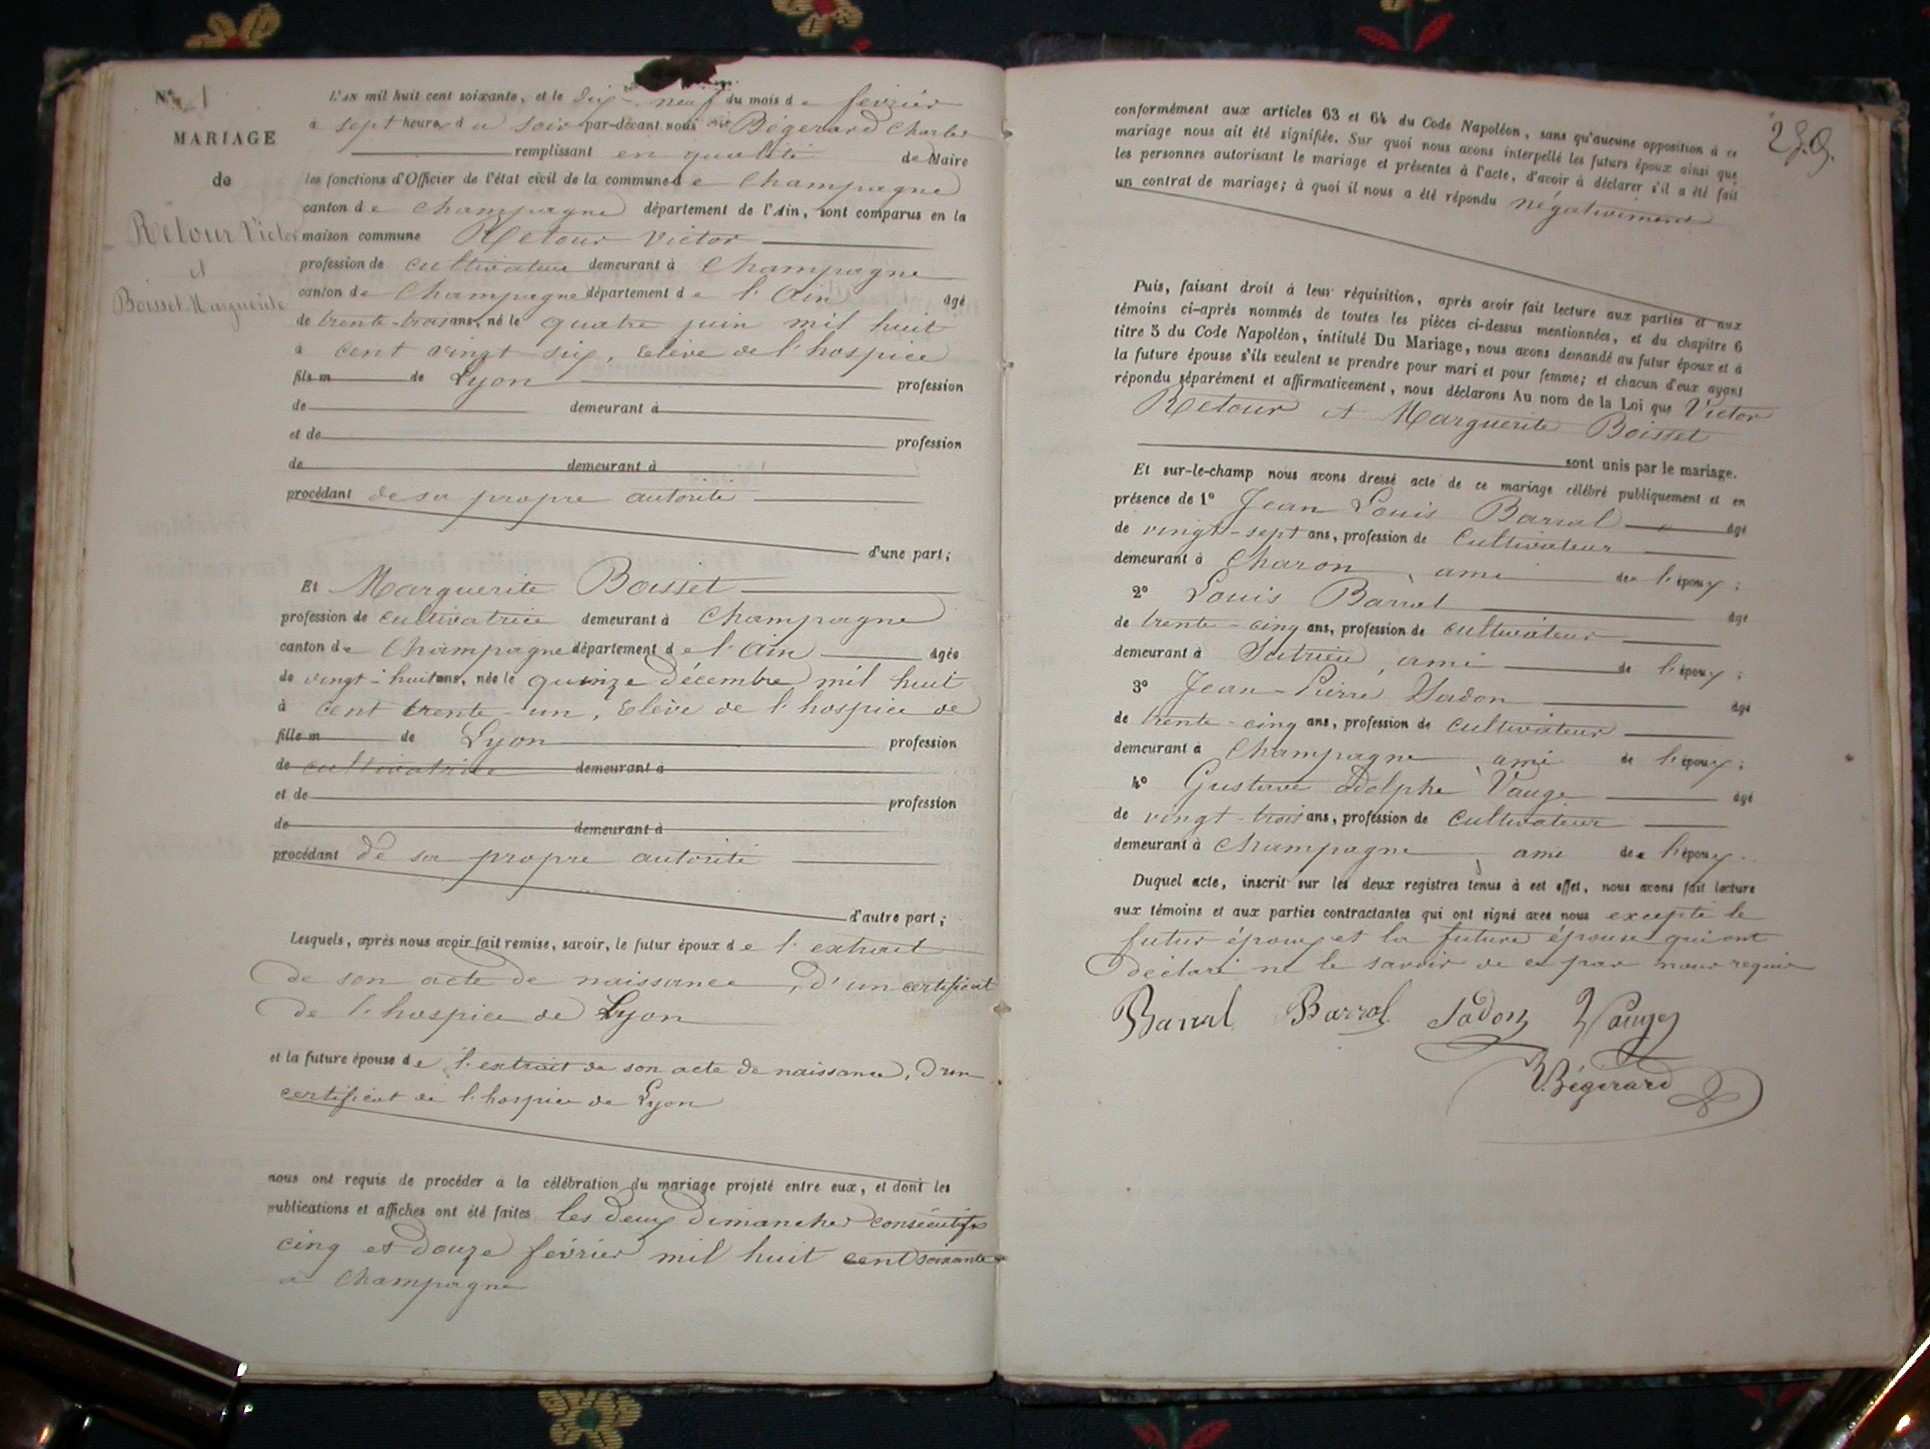 N° 1
MARIAGE
de
Retour Victor
et
Boisset Marguerite
L'AN mil huit cent soixante, et le dix-neuf du mois de fevrier
à sept heures du soir par-devant nous Bégerard Charles
remplissant en qualité de Maire
les fonctions d'Officier de l'état civil de la commune de Champagne
canton de Champagne département de l'Ain, sont comparus en la
maison commune Retour Victor
profession de cultivateur demeurant à Champagne
canton de Champagne département de l'Ain âgé
de trente-trois ans, né le quatre juin mil huit
à cent vingt six, Elève de l'hospice
fils m de Lyon profession
de demeurant à
et de profession
de demeurant à
procédant de sa propre autorité
d'une part;
Et Marguerite Boisset
profession de cultivatrice demeurant à Champagne
canton de Champagne département de l'Ain âgée
de vingt-huit ans, née le quinze décembre mil huit
à cent trente-un, Elève de l'hospice de
fille m de Lyon profession
de cultivatrice demeurant à
et de profession
de demeurant à
procédant de sa propre autorité
d'autre part;
Lesquels, après nous avoir fait remise, savoir, le futur époux de l'extrait
de son acte de naissance, d'un certificat
de l'hospice de Lyon
et la future épouse de l'extrait de son acte de naissance, d'un
certificat de l'hospice de Lyon
nous ont requis de procéder à la célébration du mariage projeté entre eux, et dont les
publications et affiches ont été faites les deux dimanches consécutifs
cinq et douze février mil huit cent soixante
à Champagne
conformément aux articles 63 et 64 du Code Napoléon, sans qu'aucune opposition à ce
mariage nous ait été signifiée. Sur quoi nous avons interpellé les futurs époux ainsi que
les personnes autorisant le mariage et présentes à l'acte, d'avoir à déclarer s'il a été fait
un contrat de mariage; à quoi il nous a été répondu négativement
Puis, faisant droit à leur réquisition, après avoir fait lecture aux parties et aux
témoins ci-après nommés de toutes les pièces ci-dessus mentionnées, et du chapitre 6
titre 5 du Code Napoléon, intitulé Du Mariage, nous avons demandé au futur époux et à
la future épouse s'ils veulent se prendre pour mari et pour femme; et chacun d'eux ayant
répondu séparément et affirmativement, nous déclarons Au nom de la Loi que Victor
Retour et Marguerite Boisset
sont unis par le mariage.
Et sur-le-champ nous avons dressé acte de ce mariage célébré publiquement et en
présence de 1° Jean Louis Barral âgé
de vingt-sept ans, profession de Cultivateur
demeurant à Charon, ami de l'époux;
2° Louis Barral âgé
de trente-cinq ans, profession de cultivateur
demeurant à Sutrieu, ami de l'époux;
3° Jean-Pierre Sadon âgé
de trente-cinq ans, profession de cultivateur
demeurant à Champagne, ami de l'époux;
4° Gustave Adolphe Vauge âgé
de vingt-trois ans, profession de cultivateur
demeurant à Champagne, ami de l'époux.
Duquel acte, inscrit sur les deux registres tenus à cet effet, nous avons fait lecture
aux témoins et aux parties contractantes qui ont signé avec nous excepté le
futur époux et la future épouse qui ont
déclaré ne le savoir de ce par nous requis
Barral Barral Sadon Vauge
Bégerard